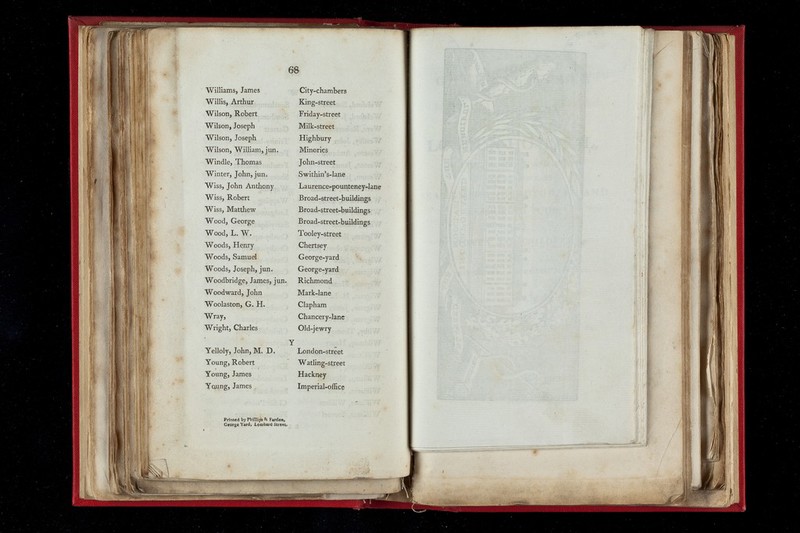 68
Williams, James City-chambers
Willis, Arthur King-street
Wilson, Robert Friday-street
Wilson, Joseph Milk-street
Wilson, Joseph Highbury
Wilson, William, jun. Minories
Windle, Thomas John-street
Winter, John, jun. Swithin's-lane
Wiss, John Anthony Laurence-pounteney-lane
Wiss, Robert Broad-street-buildings
Wiss, Matthew Broad-street-buildings
Wood, George Broad-street-buildings
Wood, L. W. Tooley-street
Woods, Henry Chertsey
Woods, Samuel George-yard
Woods, Joseph, jun. George-yard
Woodbridge, James, jun. Richmond
Woodward, John Mark-lane
Woolaston, G. H. Clapham
Wray, Chancery-lane
Wright, Charles Old-jewry
Y
Yelloly, John, M. D. London-street
Young, Robert Watling-street
Young, James Hackney
Young, James Imperial-office
Printed by Phillips & Fardon,
George Yard, Lombard Street.